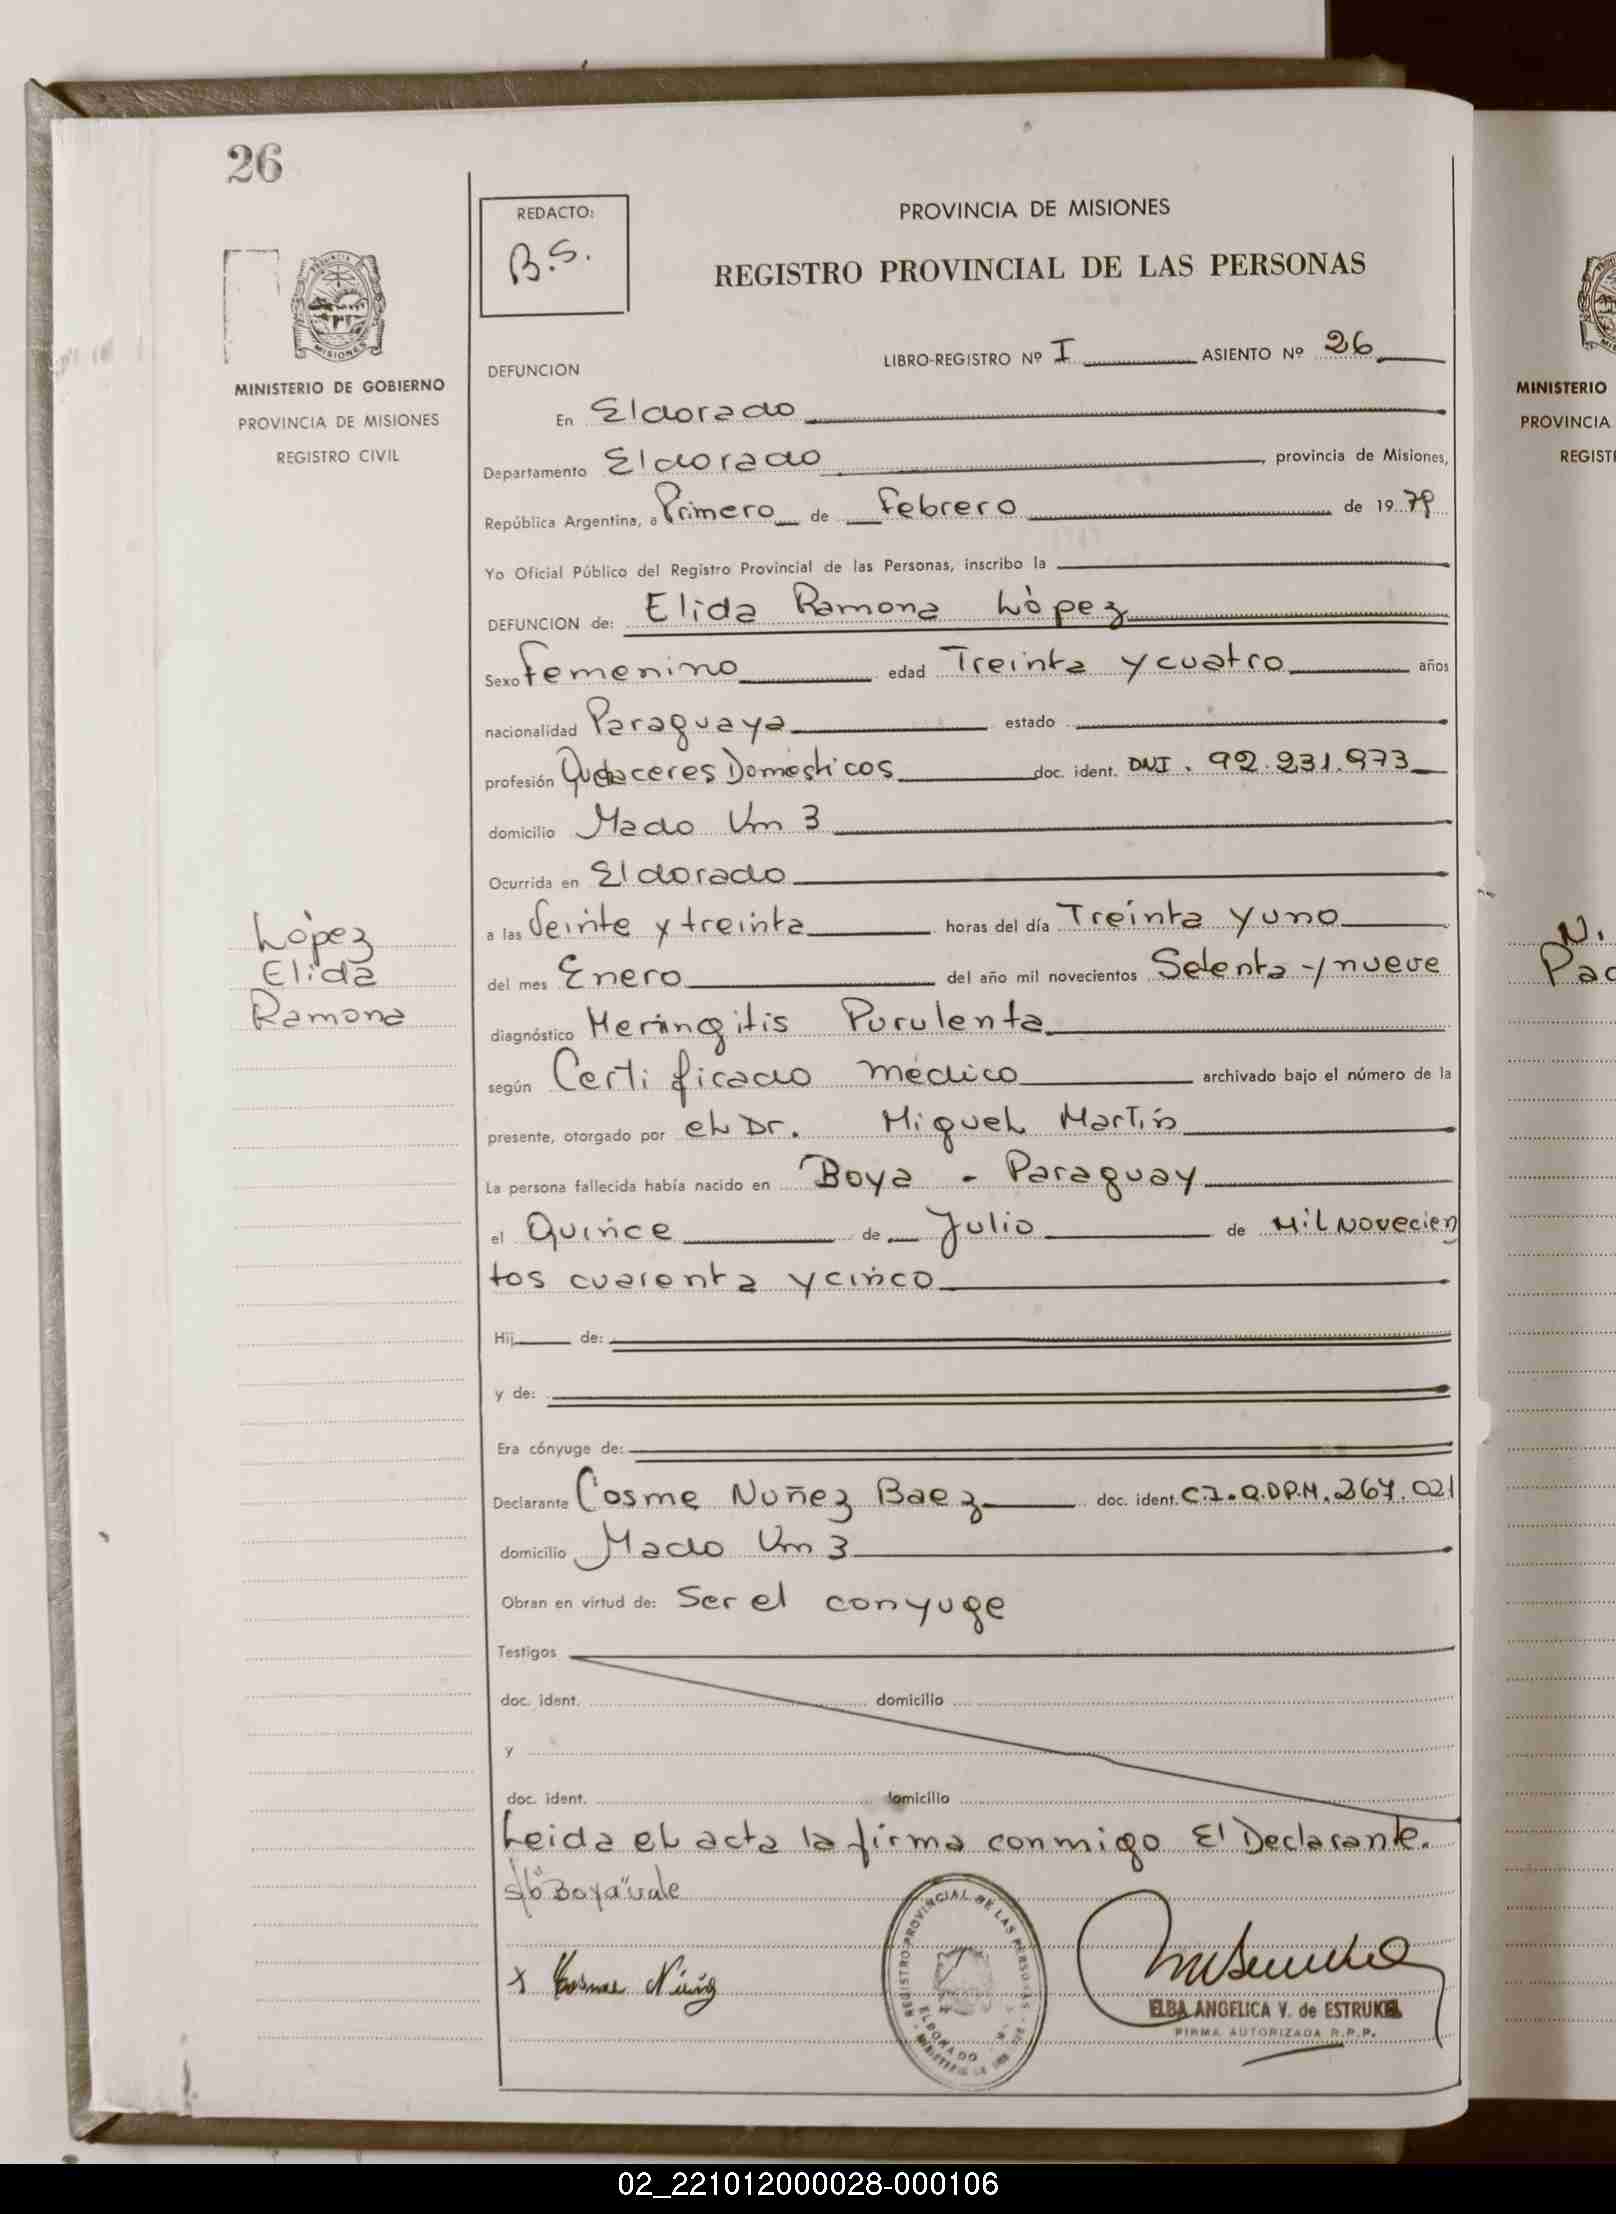 26
REDACTO:
B.S.
PROVINCIA DE MISIONES
REGISTRO PROVINCIAL DE LAS PERSONAS
PROVINCIA DE
MISIONES
MINISTERIO DE GOBIERNO
PROVINCIA DE MISIONES
REGISTRO CIVIL
DEFUNCION
LIBRO-REGISTRO Nº I ASIENTO Nº 26
En Eldorado
Departamento Eldorado, provincia de Misiones,
República Argentina, a Primero de Febrero de 1979
Yo Oficial Público del Registro Provincial de las Personas, inscribo la
DEFUNCION de: Elida Ramona Lòpez
Sexo Femenino edad Treinta y cuatro años
nacionalidad Paraguaya estado
profesión Quehaceres Domésticos doc. ident. DNI. 92.231.973
domicilio Mado Km 3
Ocurrida en Eldorado
a las Veinte y treinta horas del día Treinta y uno
del mes Enero del año mil novecientos Setenta y nueve
diagnóstico Meningitis Purulenta
según Certificado médico archivado bajo el número de la
presente, otorgado por el Dr. Miguel Martín
La persona fallecida había nacido en Boya - Paraguay
el Quince de Julio de Mil Novecien
tos cuarenta y cinco
Hij de:
y de:
Era cónyuge de:
Declarante Cosme Nuñez Baez doc. ident. C.I.Q.DP.M.267.021
domicilio Mado Km 3
Obran en virtud de: Ser el conyuge
Testigos
doc. ident. domicilio
y
doc. ident. domicilio
Leida el acta la firma conmigo El Declarante.
S/b "Boya" vale
x Cosme Nuñez
REGISTRO PROVINCIAL DE LAS PERSONAS
ELDORADO
ELBA ANGELICA V. de ESTRUKEL
FIRMA AUTORIZADA R.P.P.
Lòpez
Elida
Ramona
MINISTERIO
PROVINCIA
REGISTR
N.
Pac
02_221012000028-000106